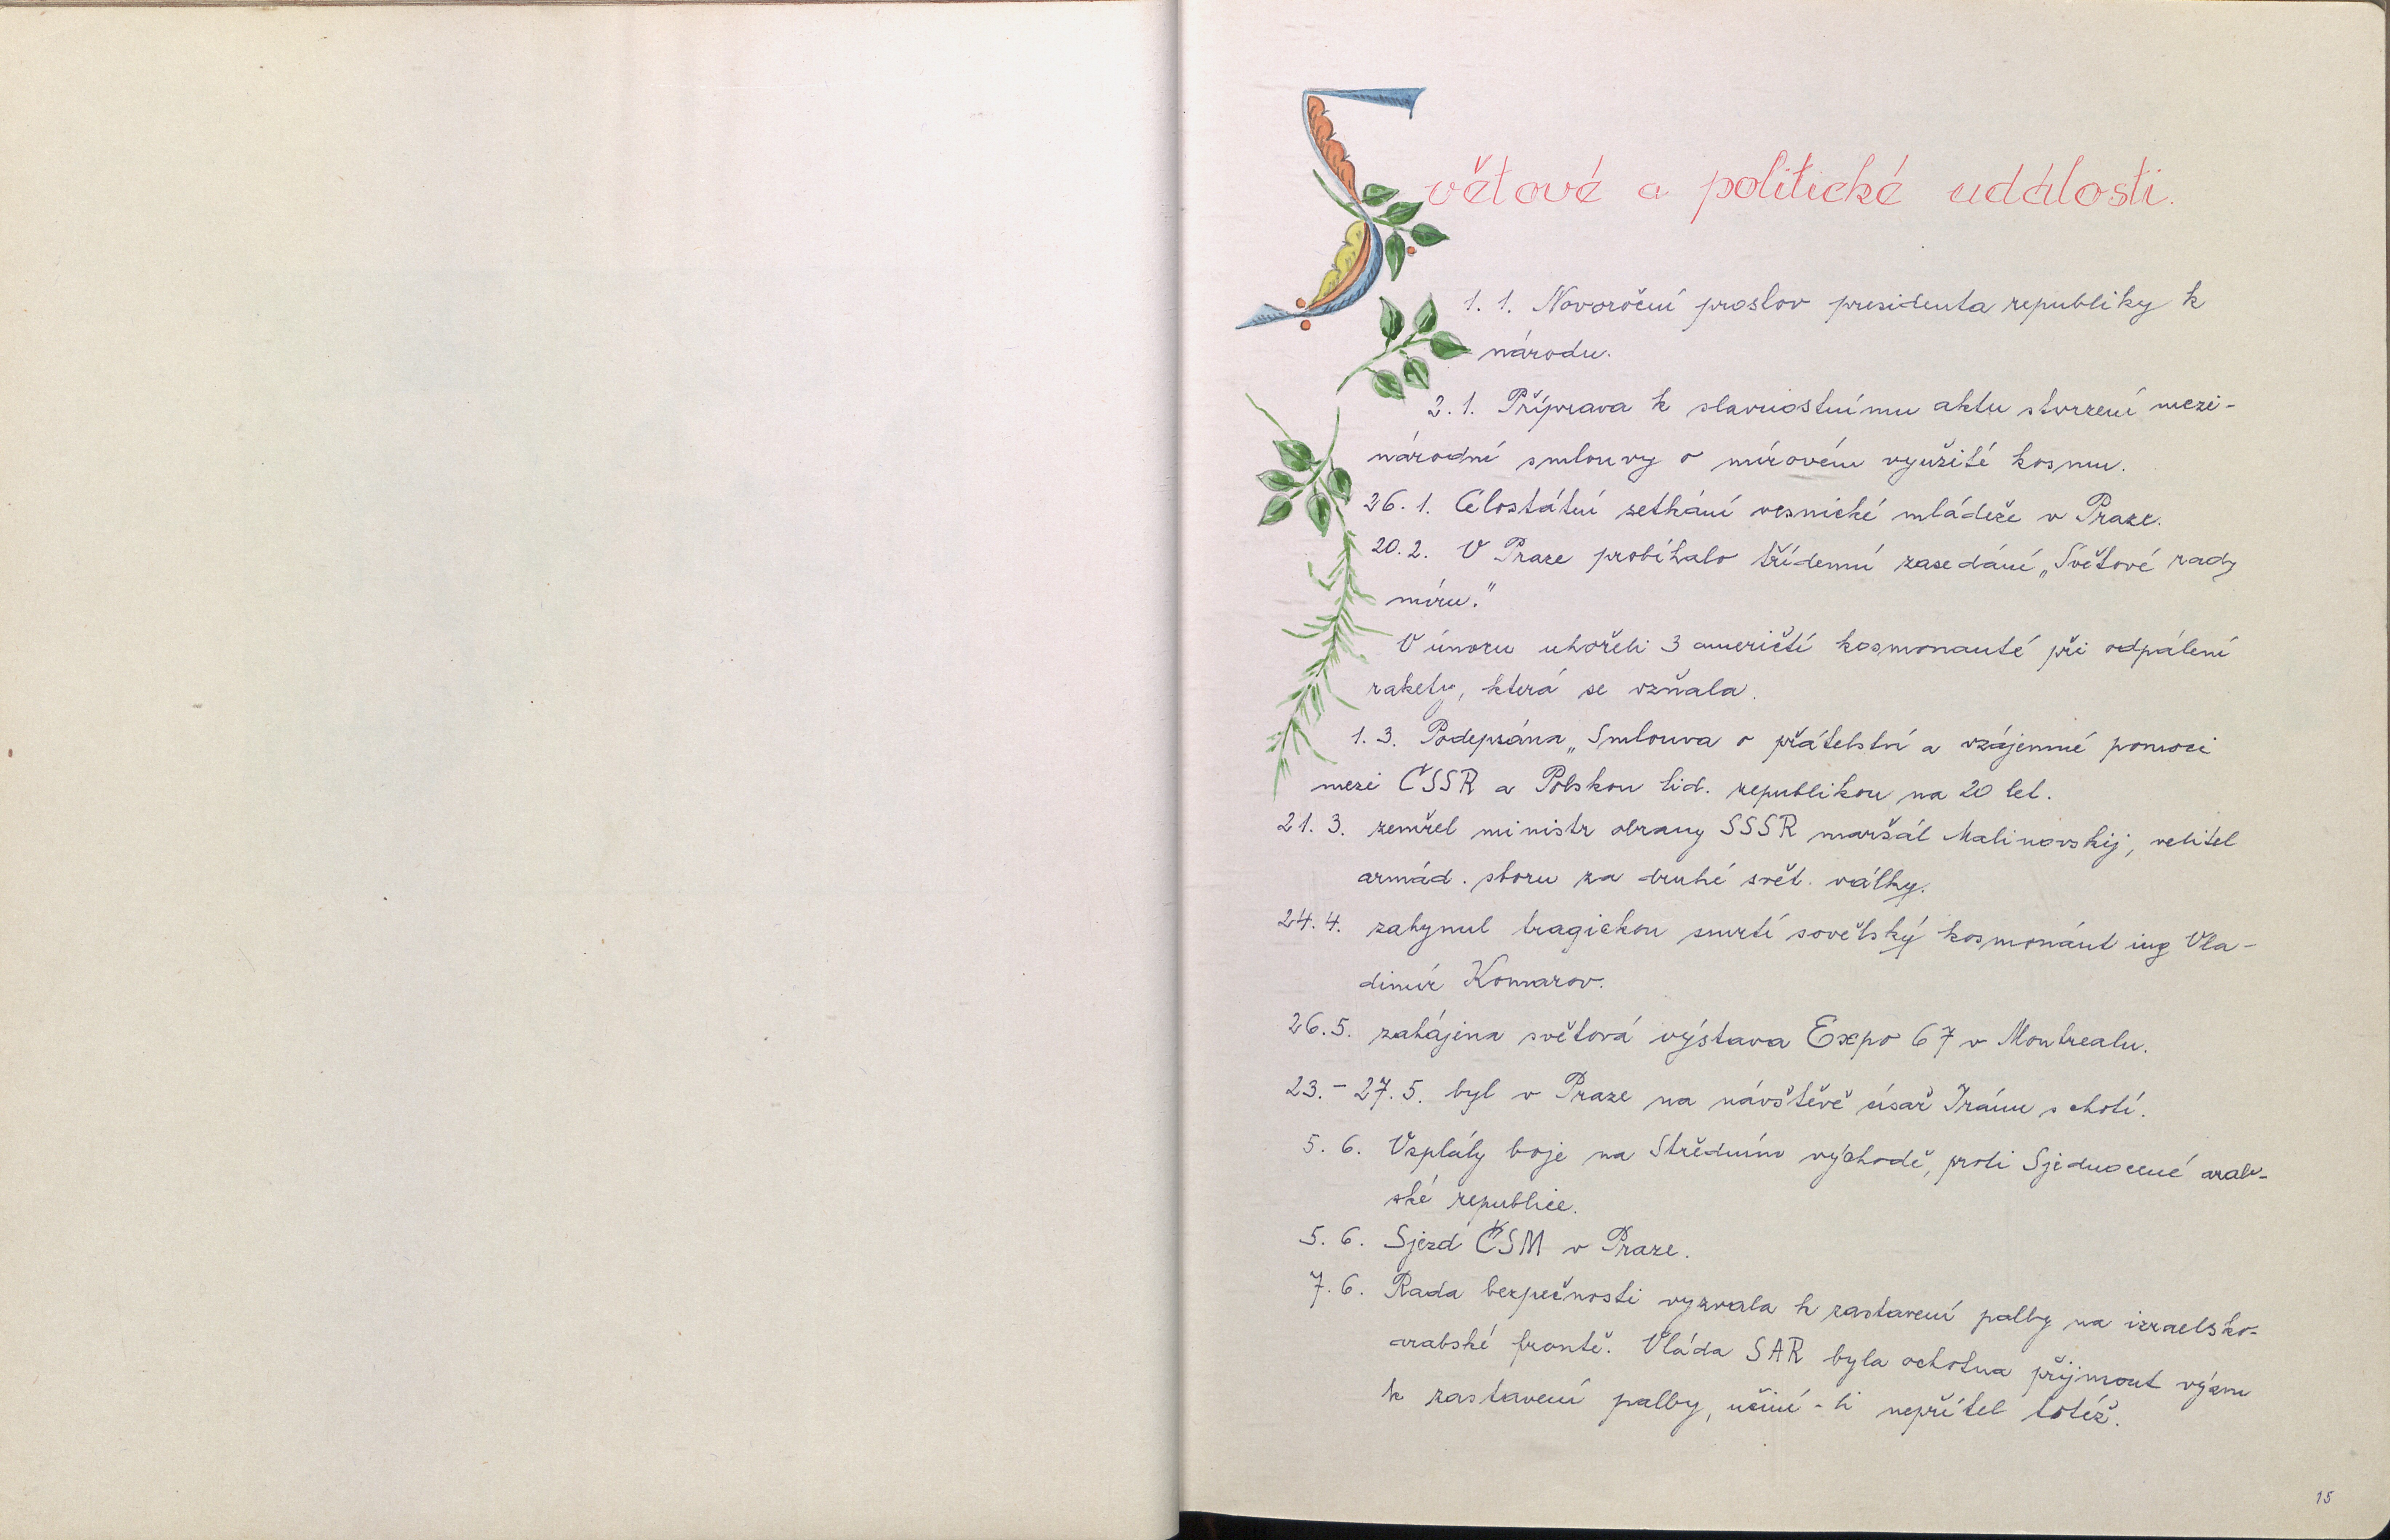 Světové a politické události.
1. 1. Novoroční proslov presidenta republiky k
národu.
2. 1. Příprava k slavnostnímu aktu stvrzení mezi-
národní smlouvy o mírovém využití kosmu.
26. 1. Celostátní setkání vesnické mládeže v Praze.
20. 2. V Praze probíhalo třídenní zasedání „Světové rady
míru."
V únoru uhořeli 3 američtí kosmonauté při odpálení
rakety, která se vzňala.
1. 3. Podepsána „Smlouva o přátelství a vzájemné pomoci
mezi ČSSR a Polskou lid. republikou na 20 let.
21. 3. zemřel ministr obrany SSSR maršál Malinovskij, velitel
armád. sboru za druhé svět. války.
24. 4. zahynul tragickou smrtí sovětský kosmonáut ing Vla-
dimír Komarov.
26. 5. zahájena světová výstava Expo 67 v Montrealu.
23. - 27. 5. byl v Praze na návštěvě císař Íránu s chotí.
5. 6. Vzplály boje na Středním východě, proti Sjednocené arab-
ské republice.
5. 6. Sjezd ČSM v Praze.
7. 6. Rada bezpečnosti vyzvala k zastavení palby na izraelsko-
arabské frontě. Vláda SAR byla ochotna přijmout výzvu
k zastavení palby, učiní-li nepřítel totéž.
15